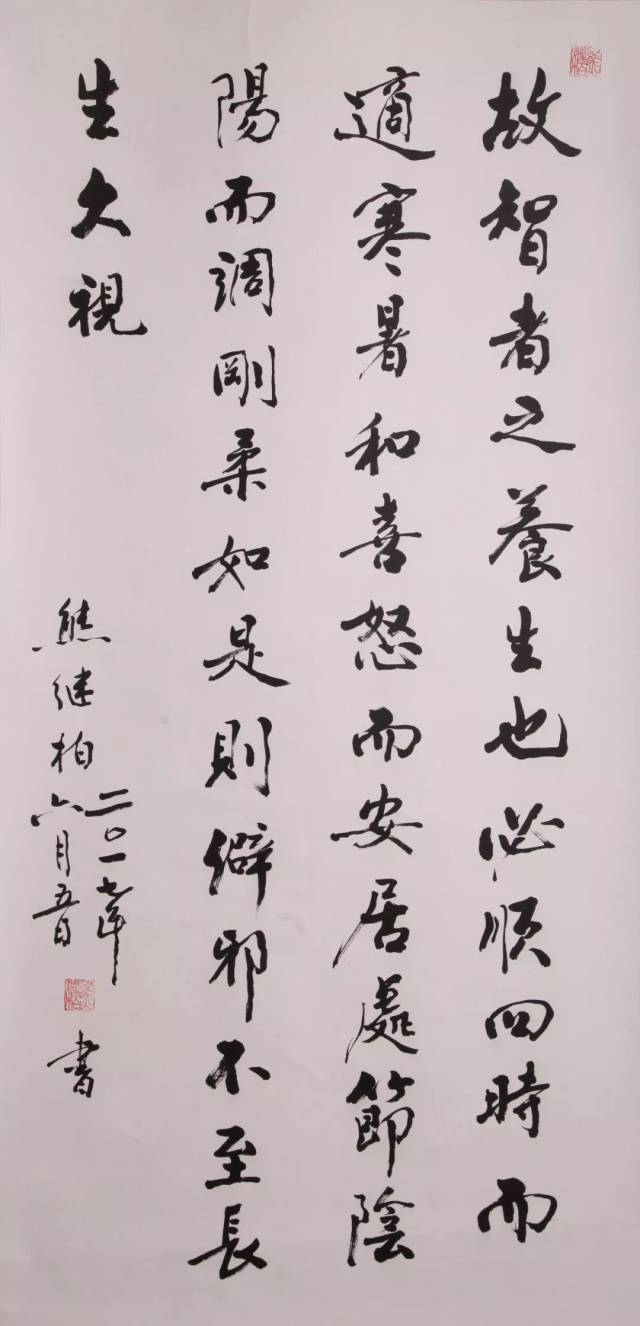 故智者之養生也必順四時而
適寒暑和喜怒而安居處節陰
陽而調剛柔如是則僻邪不至長
生久視
熊继柏
二〇一七年
六月五日
書